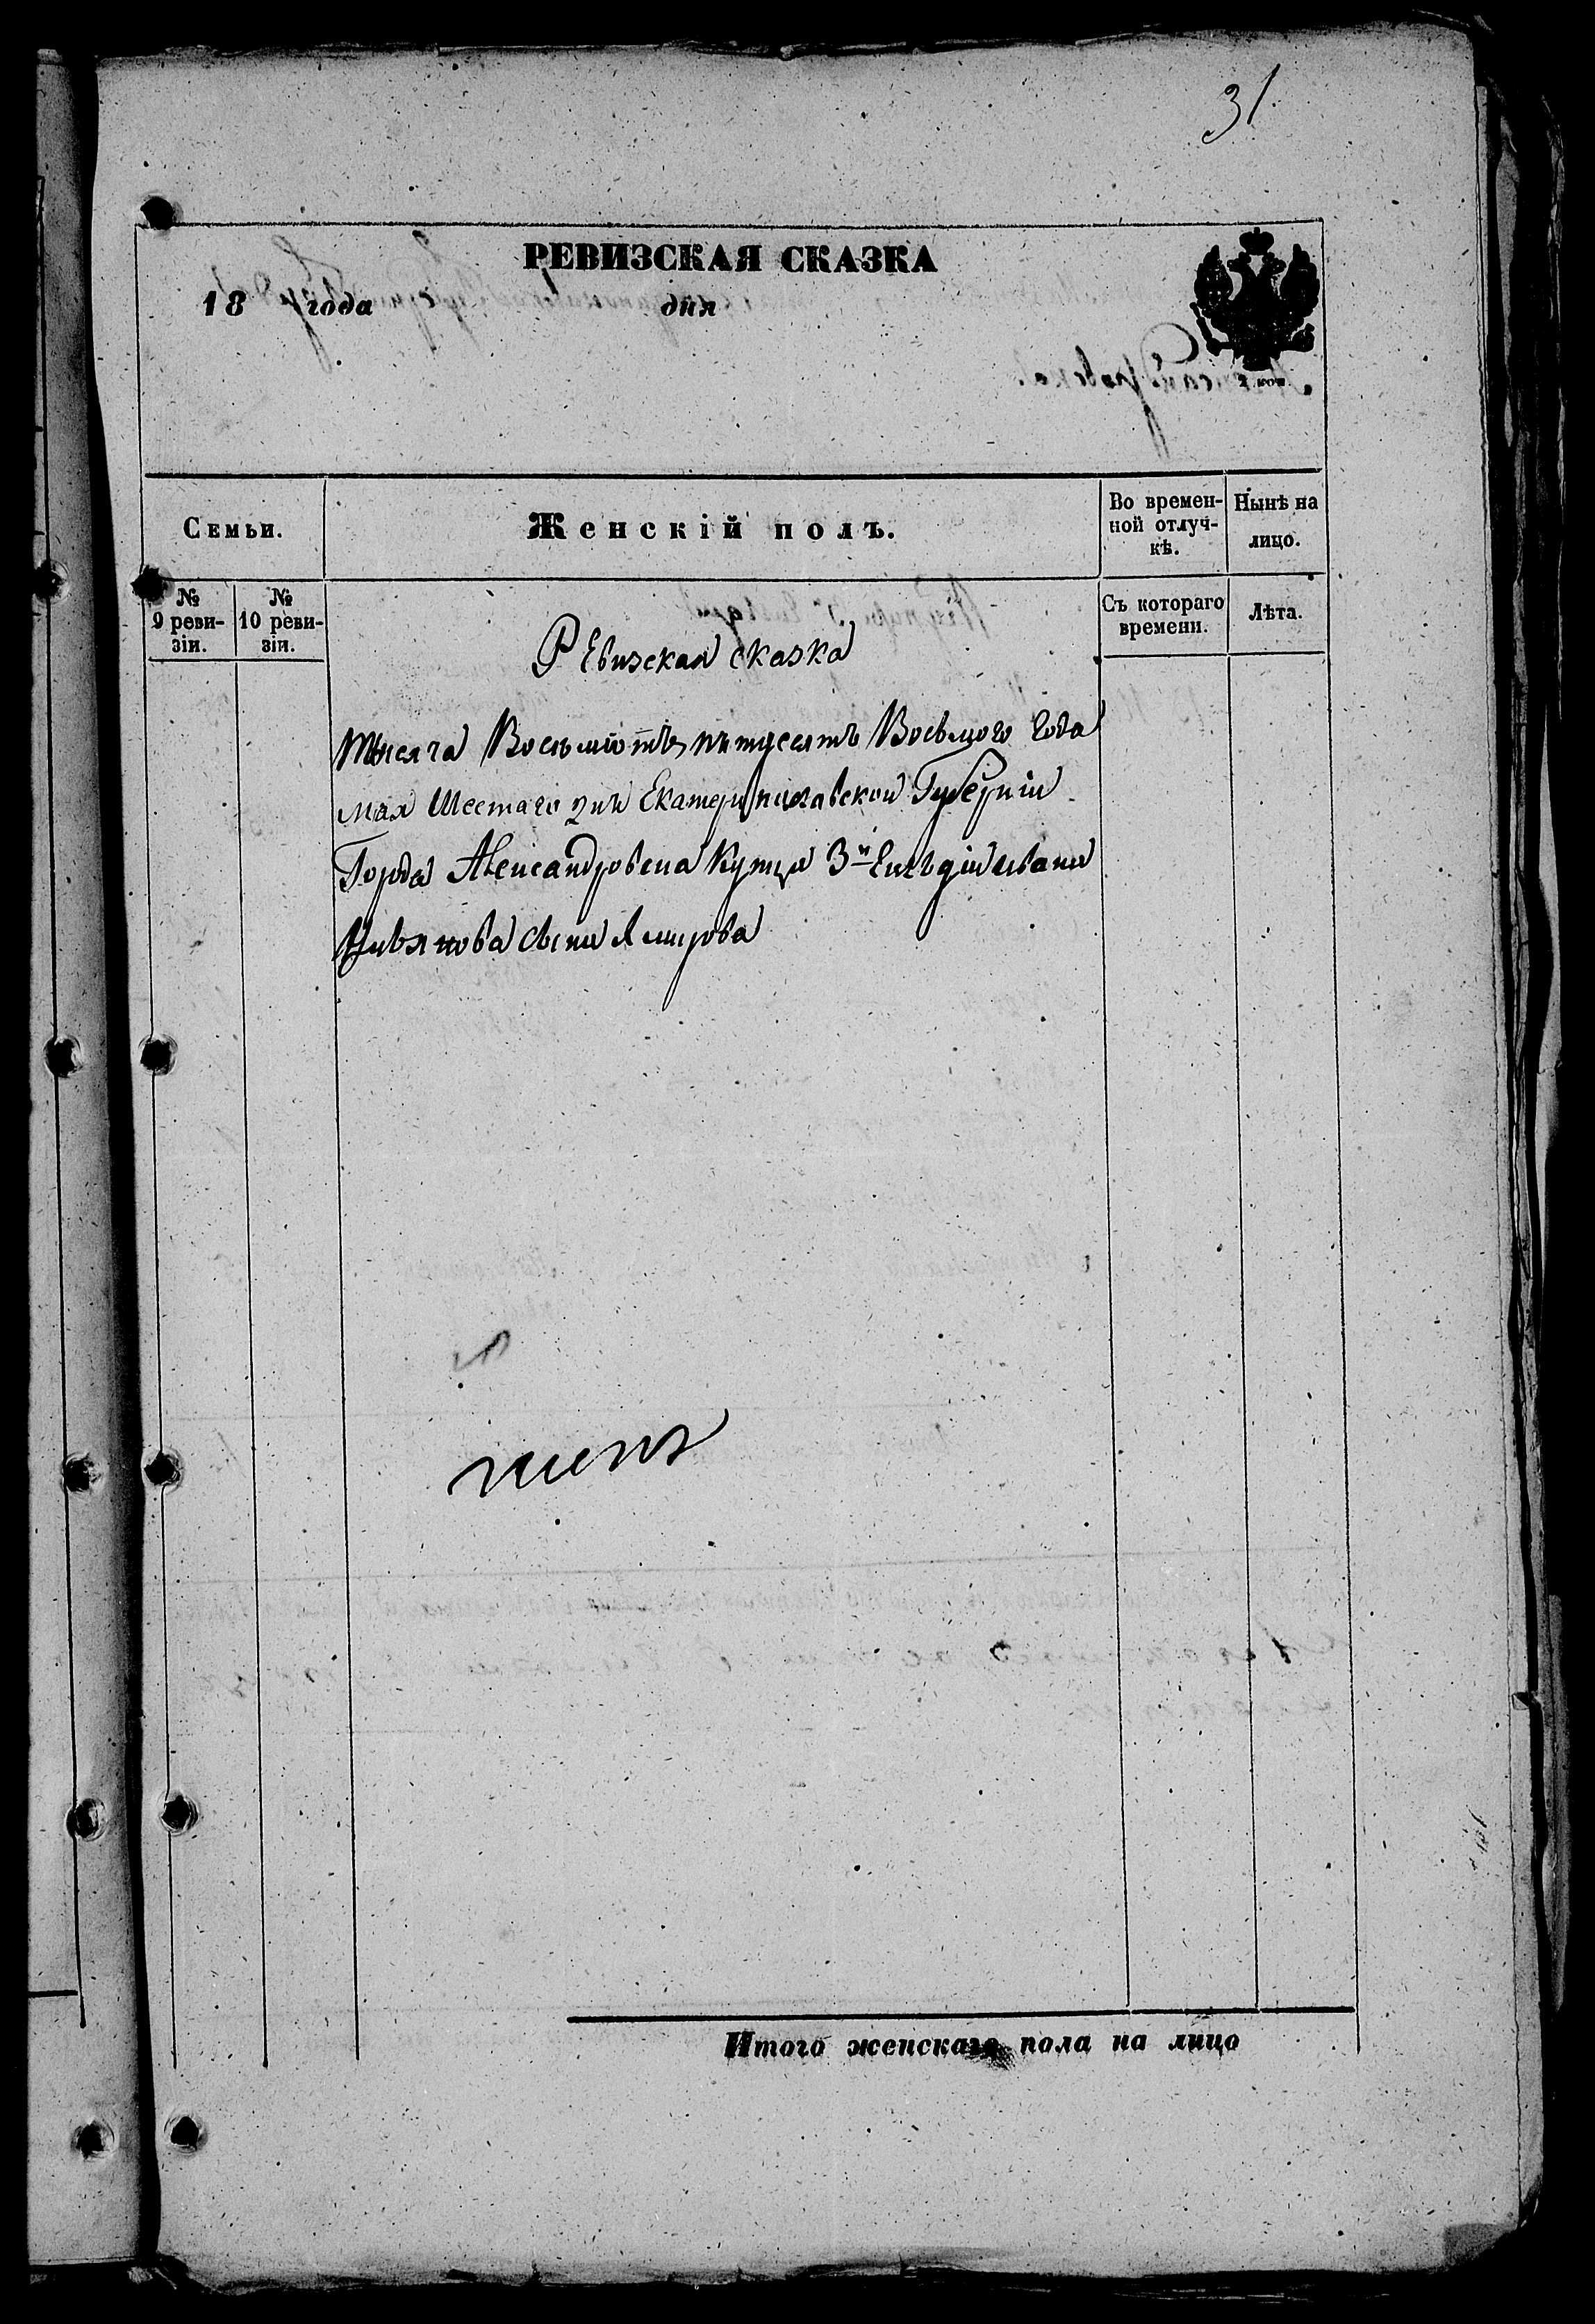 31
РЕВИЗСКАЯ СКАЗКА
18 года дня
Семьи.
Женскій полъ.
Во времен-
ной отлуч-
кѣ.
Нынѣ на
лицо.
№
9 реви-
зіи.
№
10 реви-
зіи.
Съ котораго
времени.
Лѣта.
Ревизская сказка
тысяча Восьмотъ пятдесятъ Восьмого Года
мая Шестаго дня Екатеринославской Губерніи
Города Александровска Купца 3й Гильдіи
сына
Итого женскаго пола на лицо